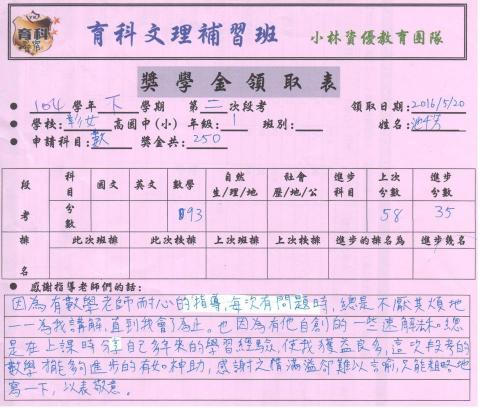 育科
育科文理補習班 小林資優教育團隊
獎學金領取表
● 104 學年 下 學期 第 二 次段考 領取日期:2016/5/20
● 學校:彰女 高國中(小) 年級:1 班別: 姓名:
● 申請科目:數 獎金共:250
段考 科目 國文 英文 數學 自然生/理/地 社會歷/地/公 進步科目 上次分數 進步分數
分數 93 58 35
排名 此次班排 此次校排 上次班排 上次校排 進步的排名為 進步幾名
● 感謝指導老師們的話:
因為有數學老師耐心的指導,每次有問題時,總是不厭其煩地
一一為我講解,直到我會了為止。也因為有他自創的一些速解法和總
是在上課時分享自己多年來的學習經驗,使我獲益良多,這次段考的
數學才能夠進步的有如神助,感謝之情滿溢卻難以言喻,只能粗略地
寫一下,以表敬意。